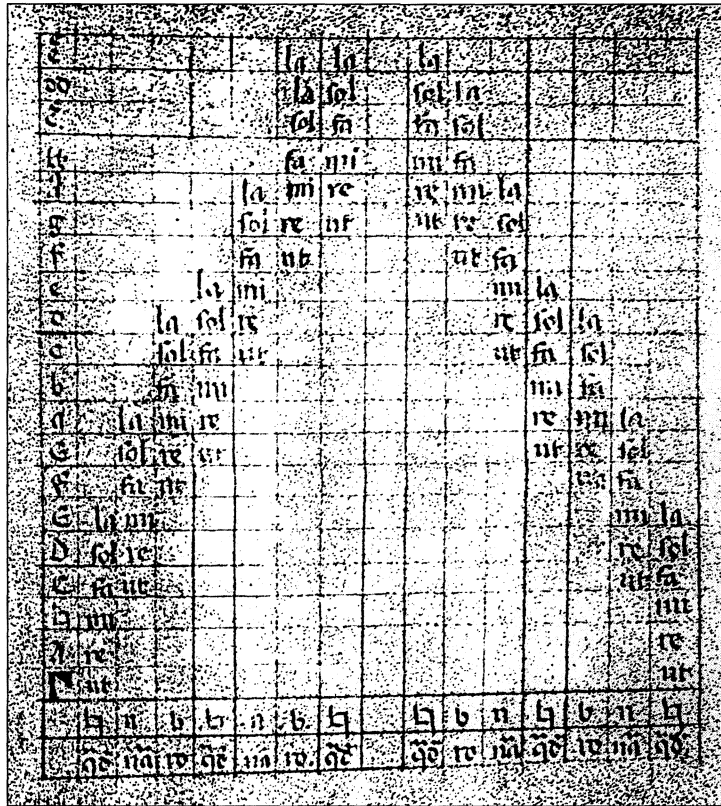 la la la
la sol sol la
sol fa fa sol
fa mi mi fa
la mi re re mi la
g sol re ut ut re sol
f fa ut ut fa
e la mi mi la
d la sol re re sol la
c sol fa ut ut fa sol
b fa mi mi fa
a la mi re re mi la
G sol re ut ut re sol
F fa ut ut fa
E la mi mi la
D sol re re sol
C fa ut ut fa
♮ mi mi
A re re
Γ ut ut
♮ n b ♮ n b ♮ ♮ b n ♮ b n ♮